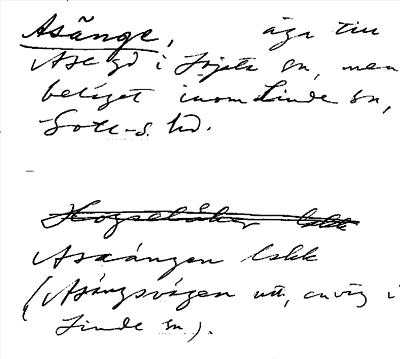 Asänge, äga till
Åse gd i Löjsta sn, men
beläget inom Linde sn,
Gotl-s. hd.
Hogselåker lokk
Asaängen lokk
(Asängsvägen utt, enväg i
Linde sn).